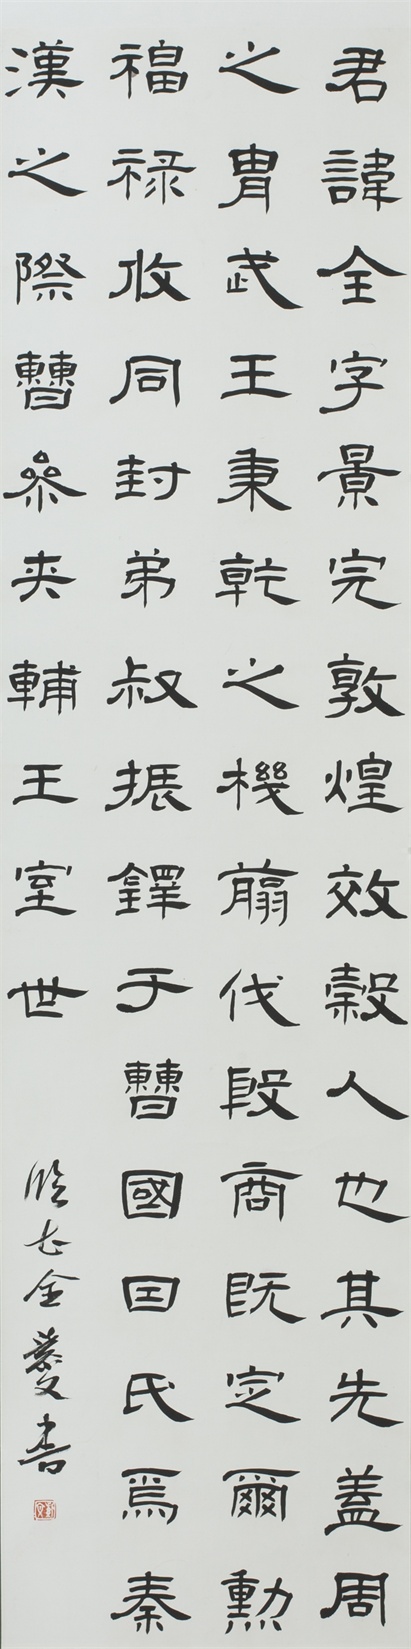 君諱全字景完敦煌效穀人也其先蓋周
之胄武王秉乾之機翦伐殷商既定爾勳
福禄攸同封弟叔振鐸于曹國因氏焉秦
漢之際曹參夾輔王室世